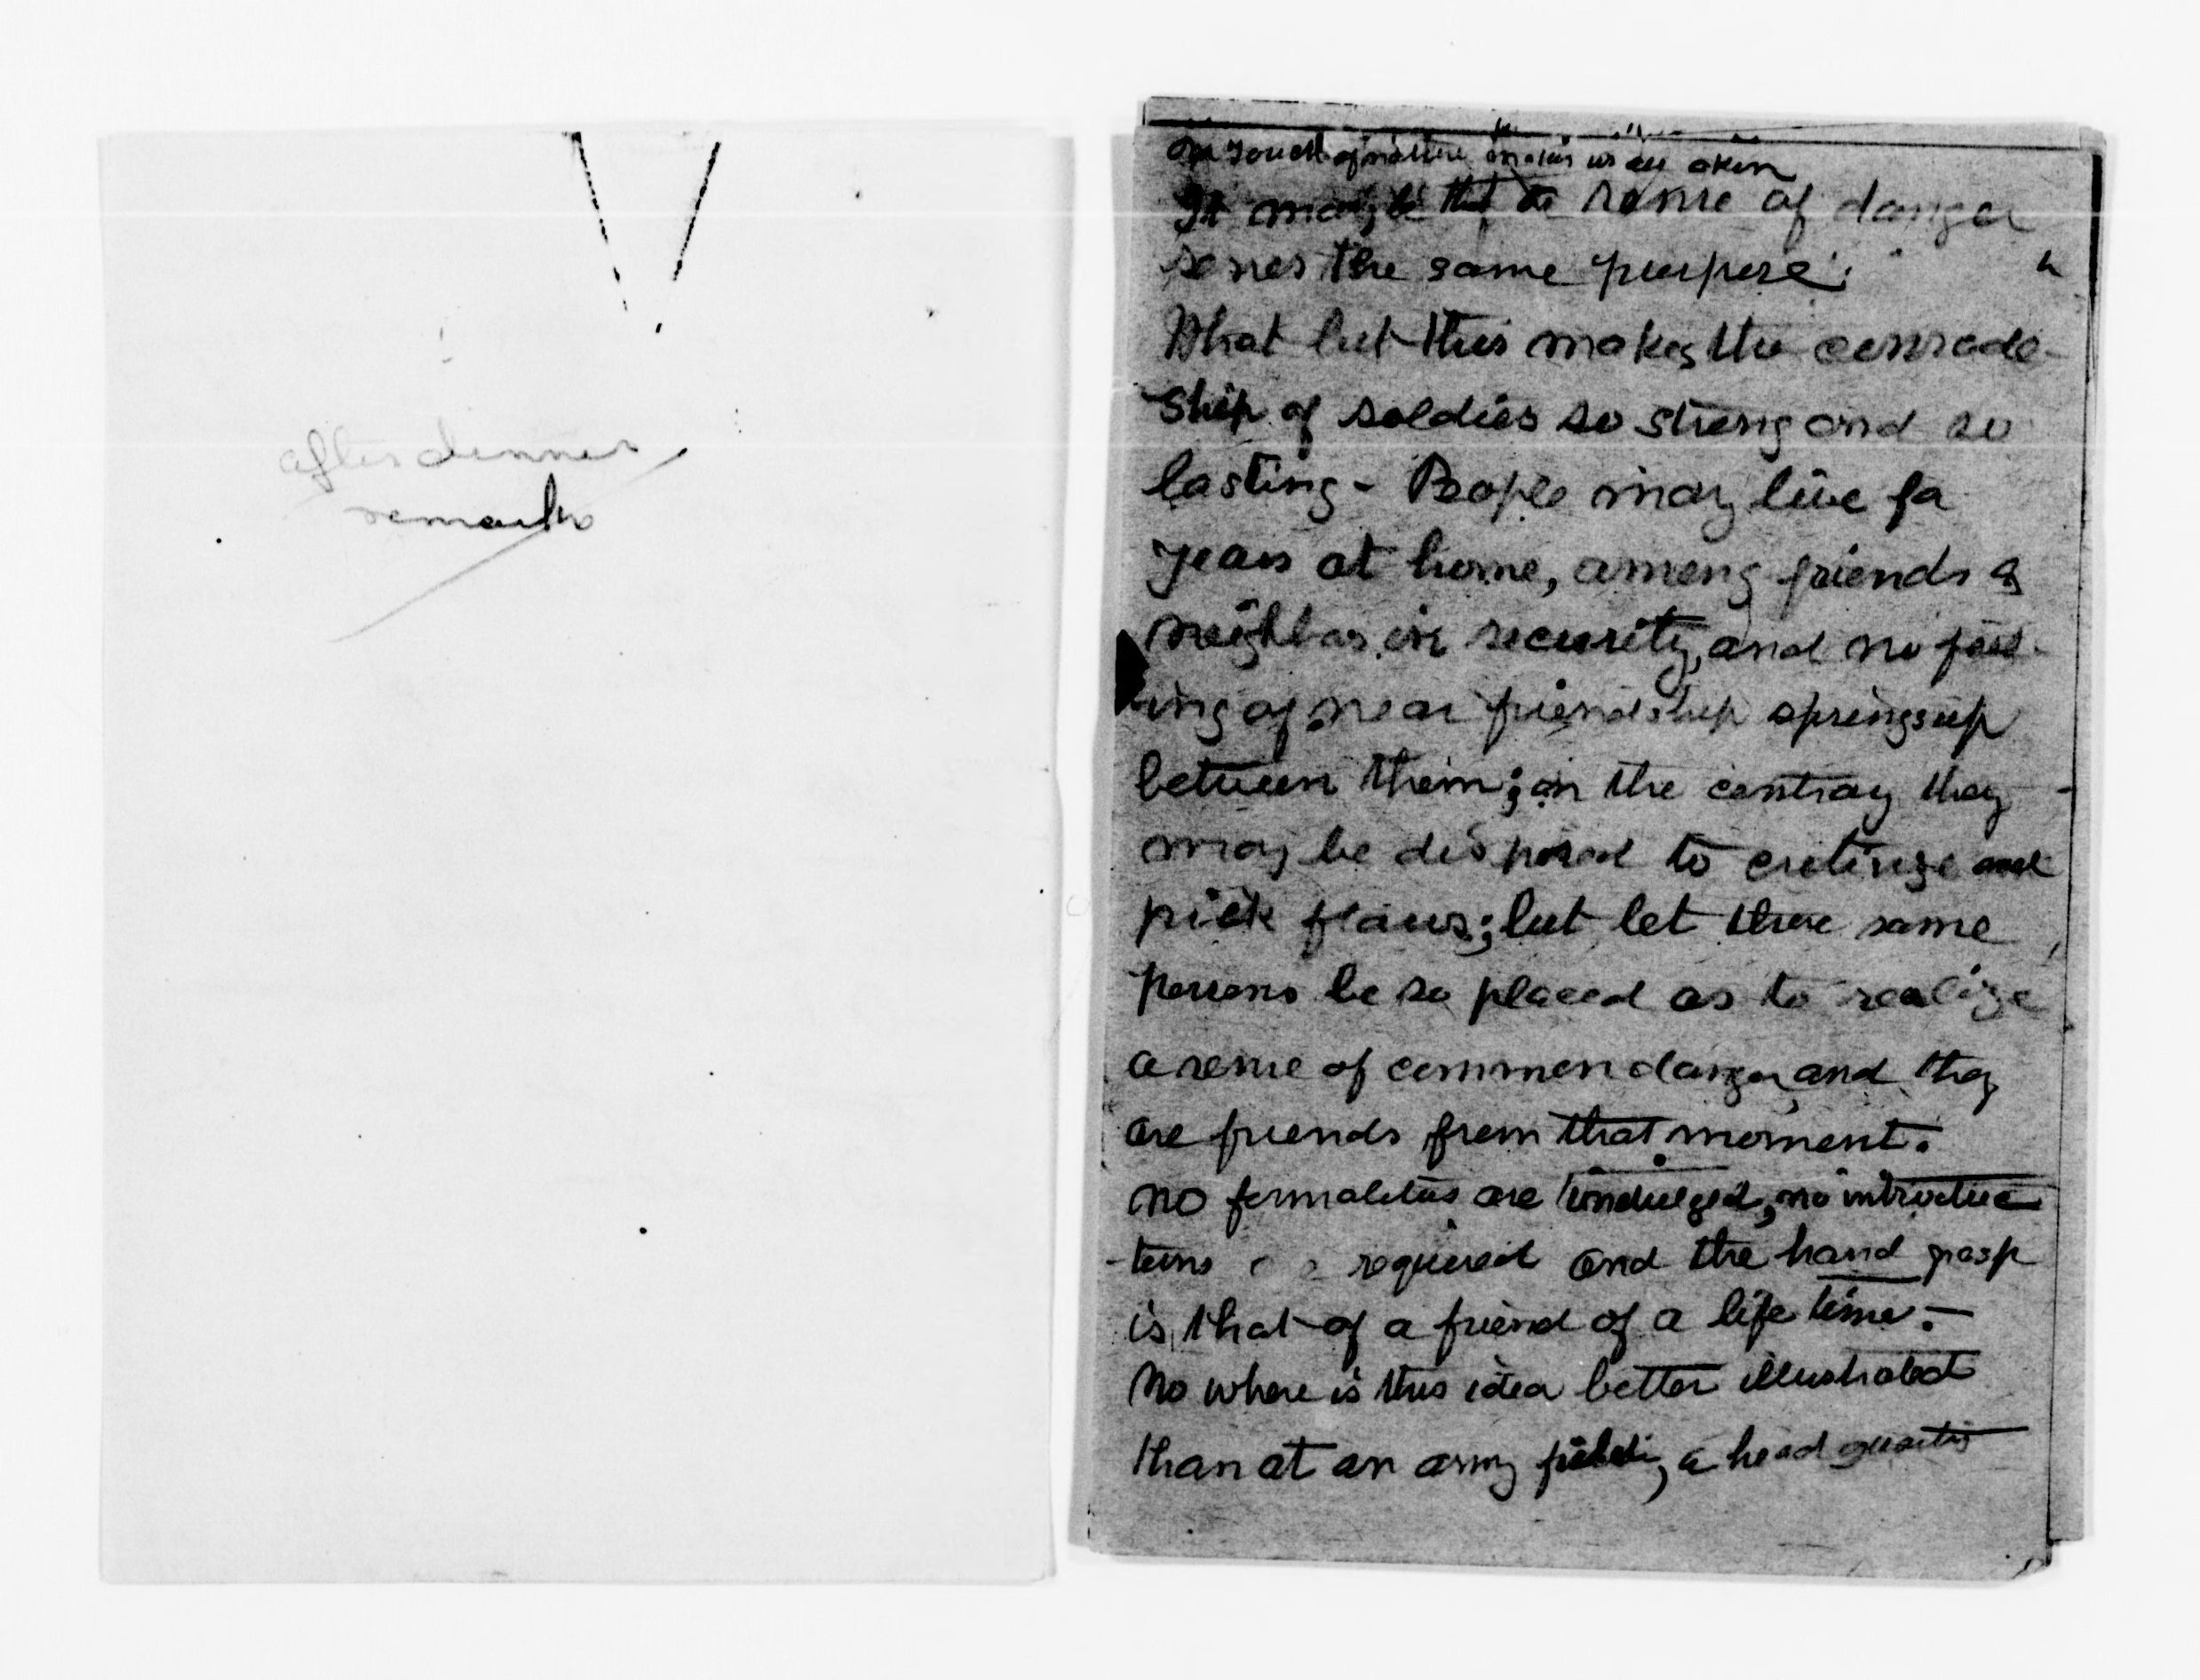 after dinner
remarks
One touch of nature makes us all akin
It may be that the sense of danger
serves the same purpose.
What but this makes the comrade-
ship of soldiers so strong and so
lasting - People may live for
years at home, among friends &
neighbors in security, and no feel-
ing of near friendship springs up
between them; on the contrary they
may be disposed to criticize and
pick flaws; but let these same
persons be so placed as to realize
a sense of common danger, and they
are friends from that moment.
No formalities are indulged, no introduc
-tions required and the hand grasp
is that of a friend of a life time. -
No where is this idea better illustrated
than at an army field, a head quarters